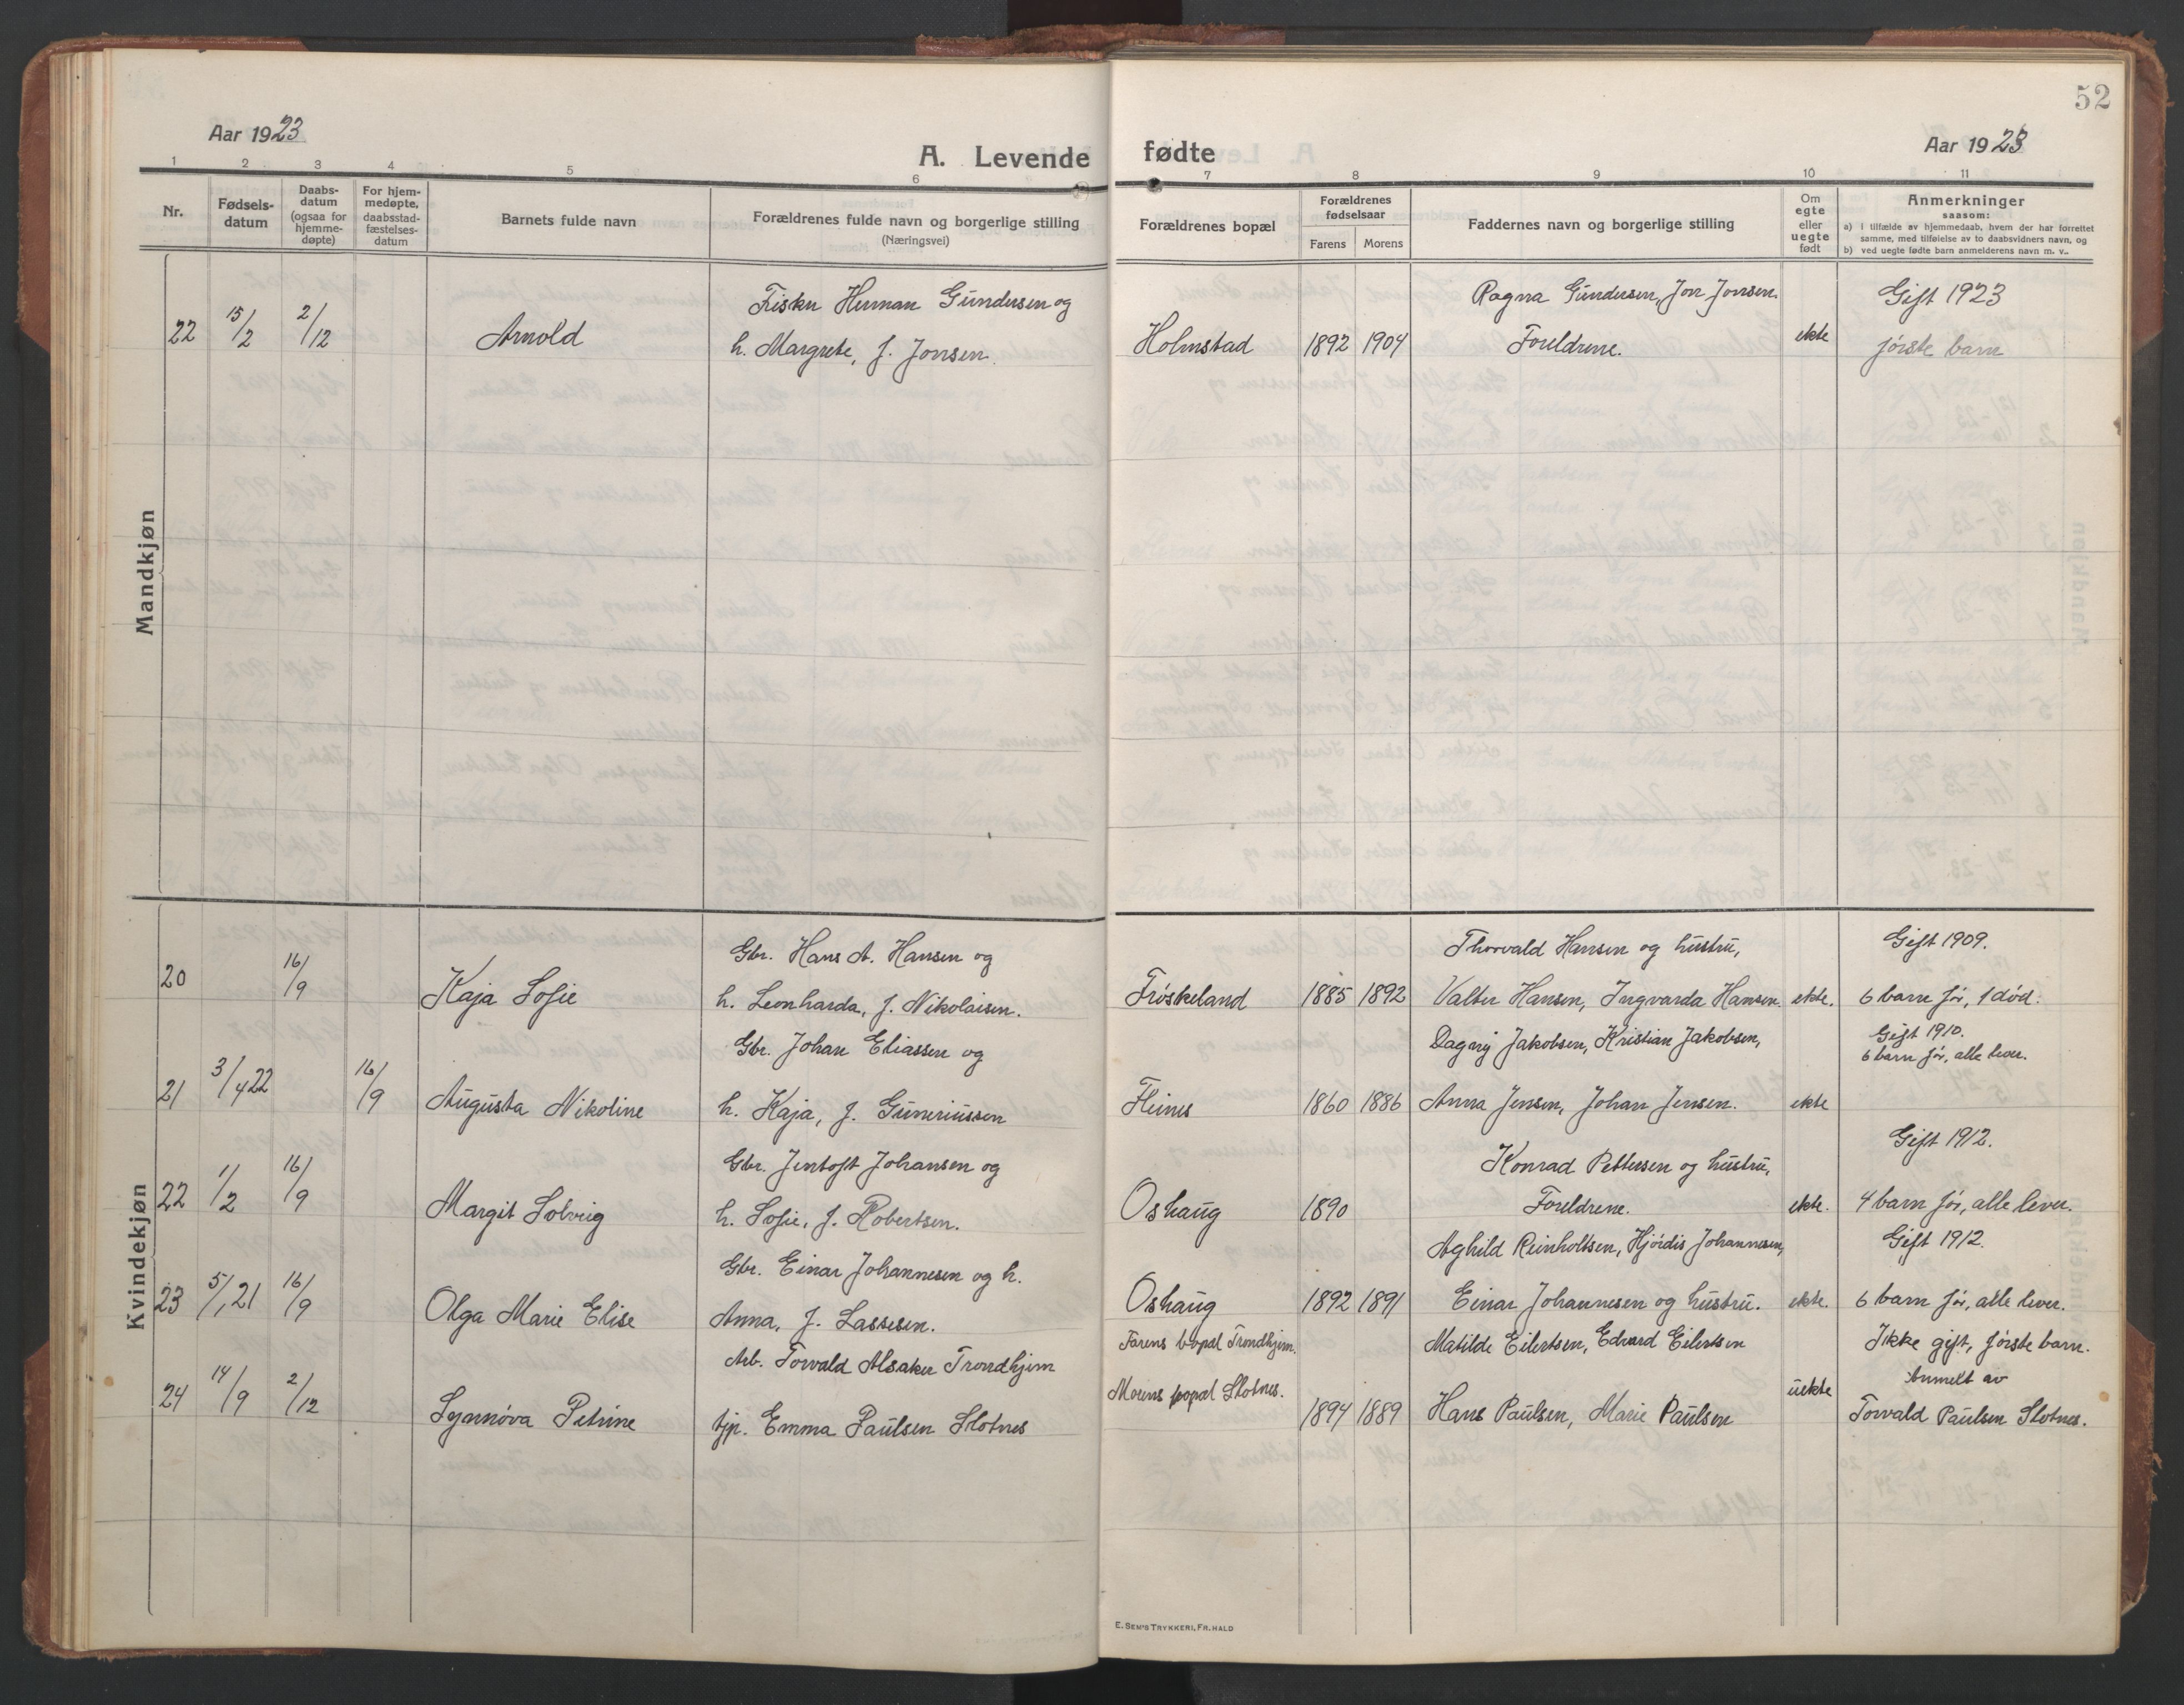 52
Aar 1923
A. Levende fødte
Aar 1923
1 2 3 4 5 6 7 8 9 10 11
Nr.
Fødsels-
datum
Daabs-
datum
(ogsaa for
hjemme-
døpte)
For hjem-
medøpte,
daabsstad-
fæstelses-
datum
Barnets fulde navn
Forældrenes fulde navn og borgerlige stilling
(Næringsvei)
Forældrenes bopæl
Forældrenes
fødselsaar
Farens Morens
Faddernes navn og borgerlige stilling
Om
egte
eller
uegte
født
Anmerkninger
saasom:
a) i tilfælde av hjemmedaab, hvem der har forrettet
samme, med tilføielse av to daabsvidners navn, og
b) ved uegte fødte barn anmelderens navn m. v.
Mandkjøn
Fisker Herman Gundersen og Ragna Gundersen, Jon Jonsen. Gift 1923
22 15/2 2/12 Arnold h. Margrete, f. Jonsen. Holmstad 1892 1904 Foreldrene. ekte første barn
Kvindekjøn
Gbr. Hans A. Hansen og Thorvald Hansen og hustru, Gift 1909.
20 16/9 Kaja Sofie h. Leonharda, f. Nikolaisen. Frøskeland 1885 1892 Valter Hansen, Ingvarda Hansen. ekte. 6 barn før, 1 død.
Gbr. Johan Eliassen og Dagny Jakobsen, Kristian Jakobsen, Gift 1910.
6 barn før, alle lever.
21 3/4 22 16/9 Augusta Nikoline h. Kaja, f. Guneriussen Fleines 1860 1886 Anna Jensen, Johan Jensen. ekte
Gbr. Jentoft Johansen og Konrad Pettersen og hustru, Gift 1912.
22 1/2 16/9 Margit Solveig h. Sofie, f. Robertsen. Oshaug 1890 Foreldrene. ekte. 4 barn før, alle lever.
Gbr. Einar Johannesen og h. Aghild Reinholtsen, Hjørdis Johannesen, Gift 1912.
23 5/1 21 16/9 Olga Marie Elise Anna, f. Lassesen. Oshaug 1892 1891 Einar Johannesen og hustru. ekte. 6 barn før, alle lever.
Arb. Torvald Alsaker Trondhjem Farens bopæl Trondhjem. Matilde Eilertsen, Edvard Eilertsen Ikke gift, første barn.
Anmelt av
24 14/9 2/12 Synnøva Petrine tjp. Emma Paulsen Slotnes Morens bopæl Slotnes. 1894 1889 Hans Paulsen, Marie Paulsen uekte Torvald Paulsen Slotnes.
E. SEM'S TRYKKERI, FR.HALD